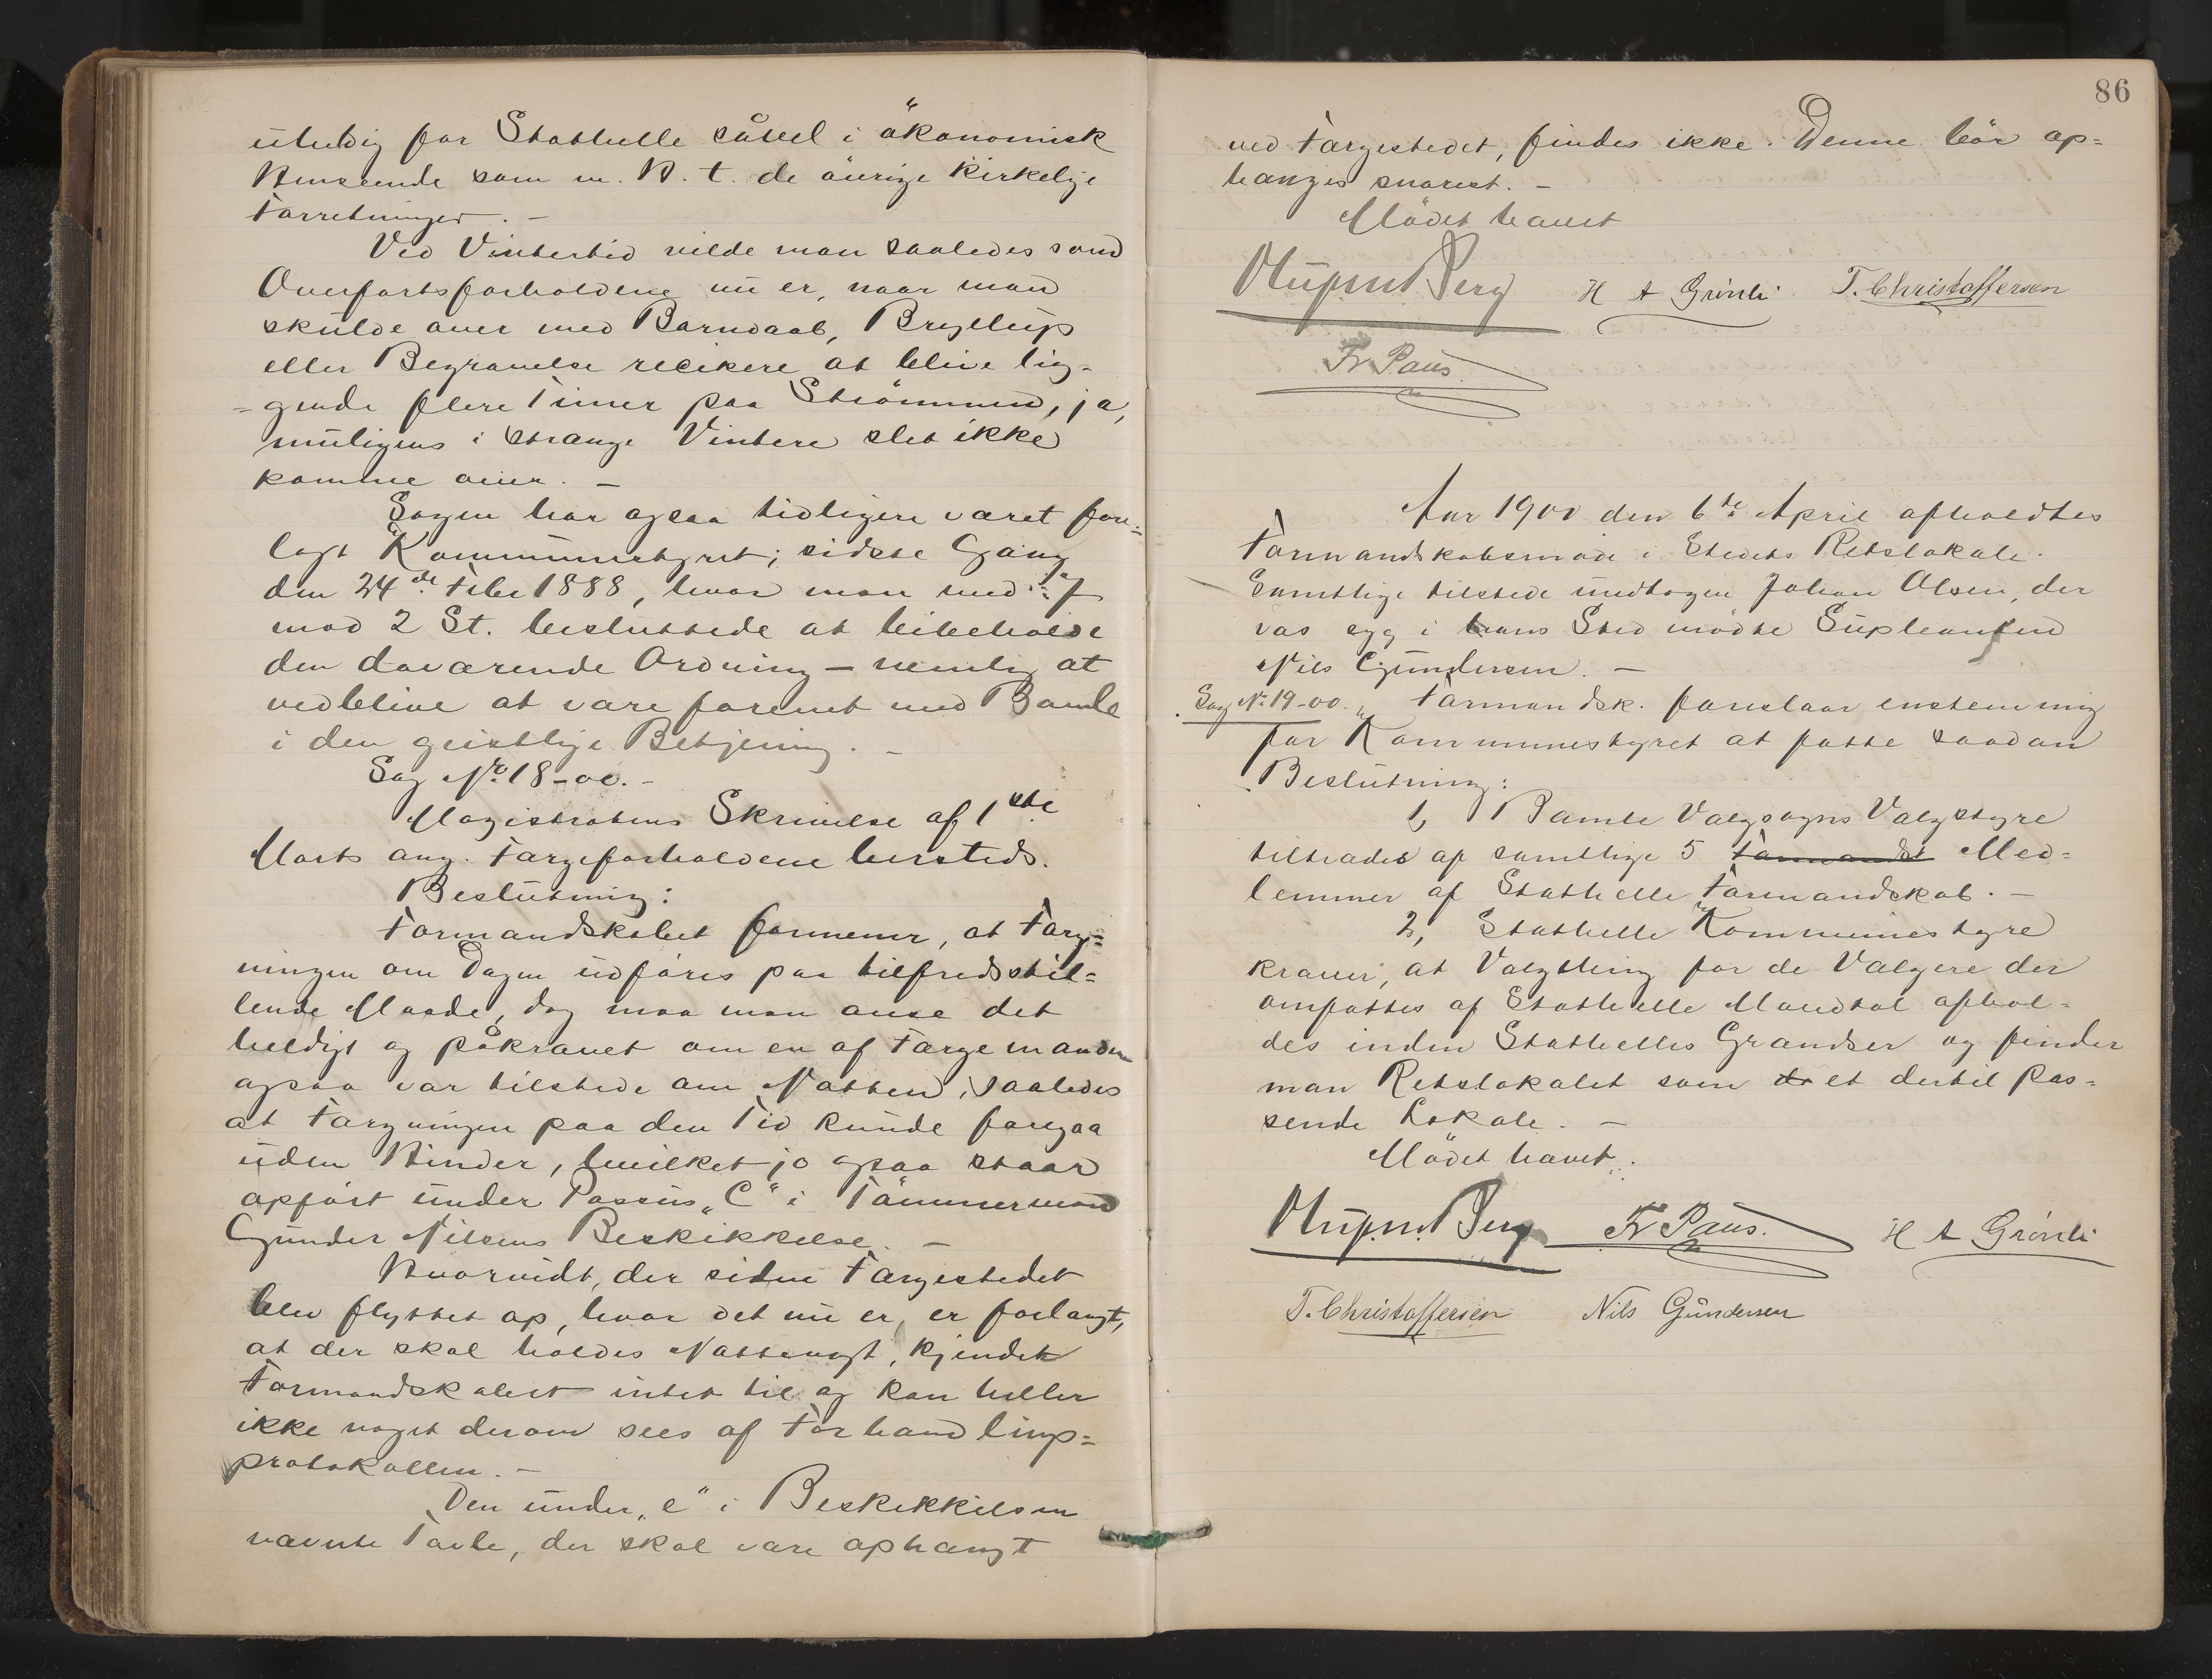 uheldig for Stathelle såvel i økonomisk
Henseende som m. H. t. de øvrige Kirkelige
Forretninger. —
Ved Vintertid vilde man saaledes som
Overfartsforholdene nu er, naar man
skulde over med Barndaab, Bryllup
eller Begravelse recikere at blive lig-
-gende flere Timer paa Strømmen, ja,
muligens i strænge Vintere slet ikke
komme over. —
Sagen har ogsaa tidligere været fore-
lagt Kommunestyret; sidste Gang
den 24de Febr 1888, hvor man med 7
mod 2 St. besluttede at bibeholde
den daværende Ordning — nemlig at
vedblive at være forenet med Bamle
i den geistlige Betjening. —
Sag No 18-00. -
Magistratens Skrivelse af 1ste
Marts ang. Færgeforholdene hersteds.
Beslutning:
Formandskabet formener, at Færg-
ningen om Dagen udføres paa tilfredsstil-
lende Maade, dog maa man anse det
heldigt og påkrævet om en af Færgemændene
ogsaa var tilstede om Natten, saaledes
at Færgningen paa den Tid kunde foregaa
uden Hinder, hvilket jo ogsaa staar
opført under Passus „C“ i Tømmermand
Gunder Nilsens Beskikkelse. —
Hvorvidt, der siden Færgestedet
blev flyttet op, hvor det nu er, er forlangt,
at der skal holdes Nattevagt, kjender
Formandskabet intet til og kan heller
ikke noget derom sees af Forhandlings-
protokollen. —
Den under „e“ i Beskikkelsen
nævnte Tavle, der skal være ophængt
86
ved Færgestedet, findes ikke. Denne bør op-
hænges snarest. —
Mødet hævet
Mupm Berg H A Grønli T. Christoffersen
Fr Paus
Aar 1900 den 6te April afholdtes
Formandskabsmøde i Stedets Retslokale.
Samtlige tilstede undtagen Johan Olsen, der
var syg i hans Sted mødte Supleanten
Nils Gundersen. —
Sag No 19-00. „ Formandsk. foreslaar enstemmig
for Kommunestyret at fatte saadan
Beslutning:
1, Bamle Valgsogns Valgstyre
tiltrædes af samtlige 5 Formandsk Med-
lemmer af Stathelle Formandskab. —
2, Stathelle Kommunestyre
kræver, at Valgthing for de Vælgere der
omfattes af Stathelle Mandtal afhol-
des inden Stathelles Grændser og finder
man Retslokalet som de et dertil pas-
sende Lokale. —
Mødet hævet.
Mupm Berg Fr Paus. H A Grønli
T. Christoffersen Nils Gundersen